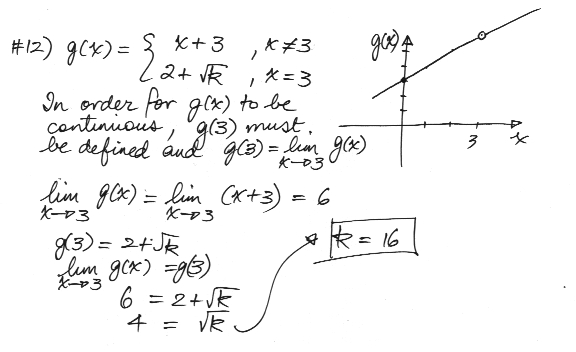 #12) g(x) = { x+3 , x≠3
2+√k , x=3
In order for g(x) to be
continuous, g(3) must
be defined and g(3) = lim x→3 g(x)
lim x→3 g(x) = lim x→3 (x+3) = 6
g(3) = 2+√k
lim x→3 g(x) = g(3)
6 = 2+√k
4 = √k
k = 16
g(x)
3
x